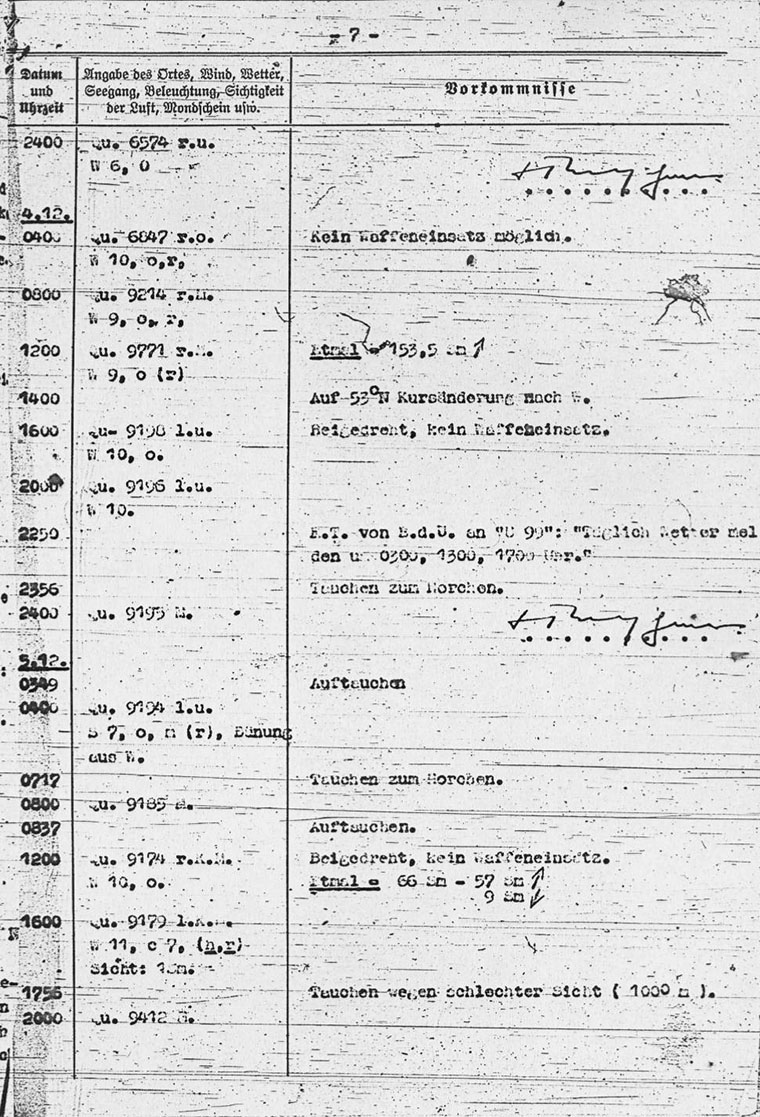 - 7 -
Datum und Uhrzeit
Angabe des Ortes, Wind, Wetter, Seegang, Beleuchtung, Sichtigkeit der Luft, Mondschein usw.
Vorkommnisse
2400 Qu. 6574 r.u.
W 6, O
4.12.
0400 Qu. 6847 r.o. Kein Waffeneinsatz möglich.
W 10, o,r,
0800 Qu. 9214 r.M.
W 9, o, r,
1200 Qu. 9771 r.M. Etmal = 153,5 Sm ↑
W 9, o (r)
1400 Auf 53°N Kursänderung nach W.
1600 Qu- 9198 l.u. Beigedreht, kein Waffeneinsatz.
W 10, o.
2000 Qu. 9196 l.u.
W 10.
2250 F.T. von B.d.U. an "U 99": "Täglich Wetter mel
den um 0300, 1300, 1700 Uhr."
2356 Tauchen zum Horchen.
2400 Qu. 9195 M.
5.12.
0349 Auftauchen
0400 Qu. 9194 l.u.
S 7, o, m (r), Dünung
aus W.
0717 Tauchen zum Horchen.
0800 Qu. 9185 M.
0837 Auftauchen.
1200 Qu. 9174 r.K.M. Beigedreht, kein Waffeneinsatz.
W 10, o. Etmal = 66 Sm - 57 Sm ↑
9 Sm ↓
1600 Qu. 9179 l.K.
W 11, c 7, (h,r)
Sicht:
1756 Tauchen wegen schlechter Sicht ( 1000 m ).
2000 Qu. 9412